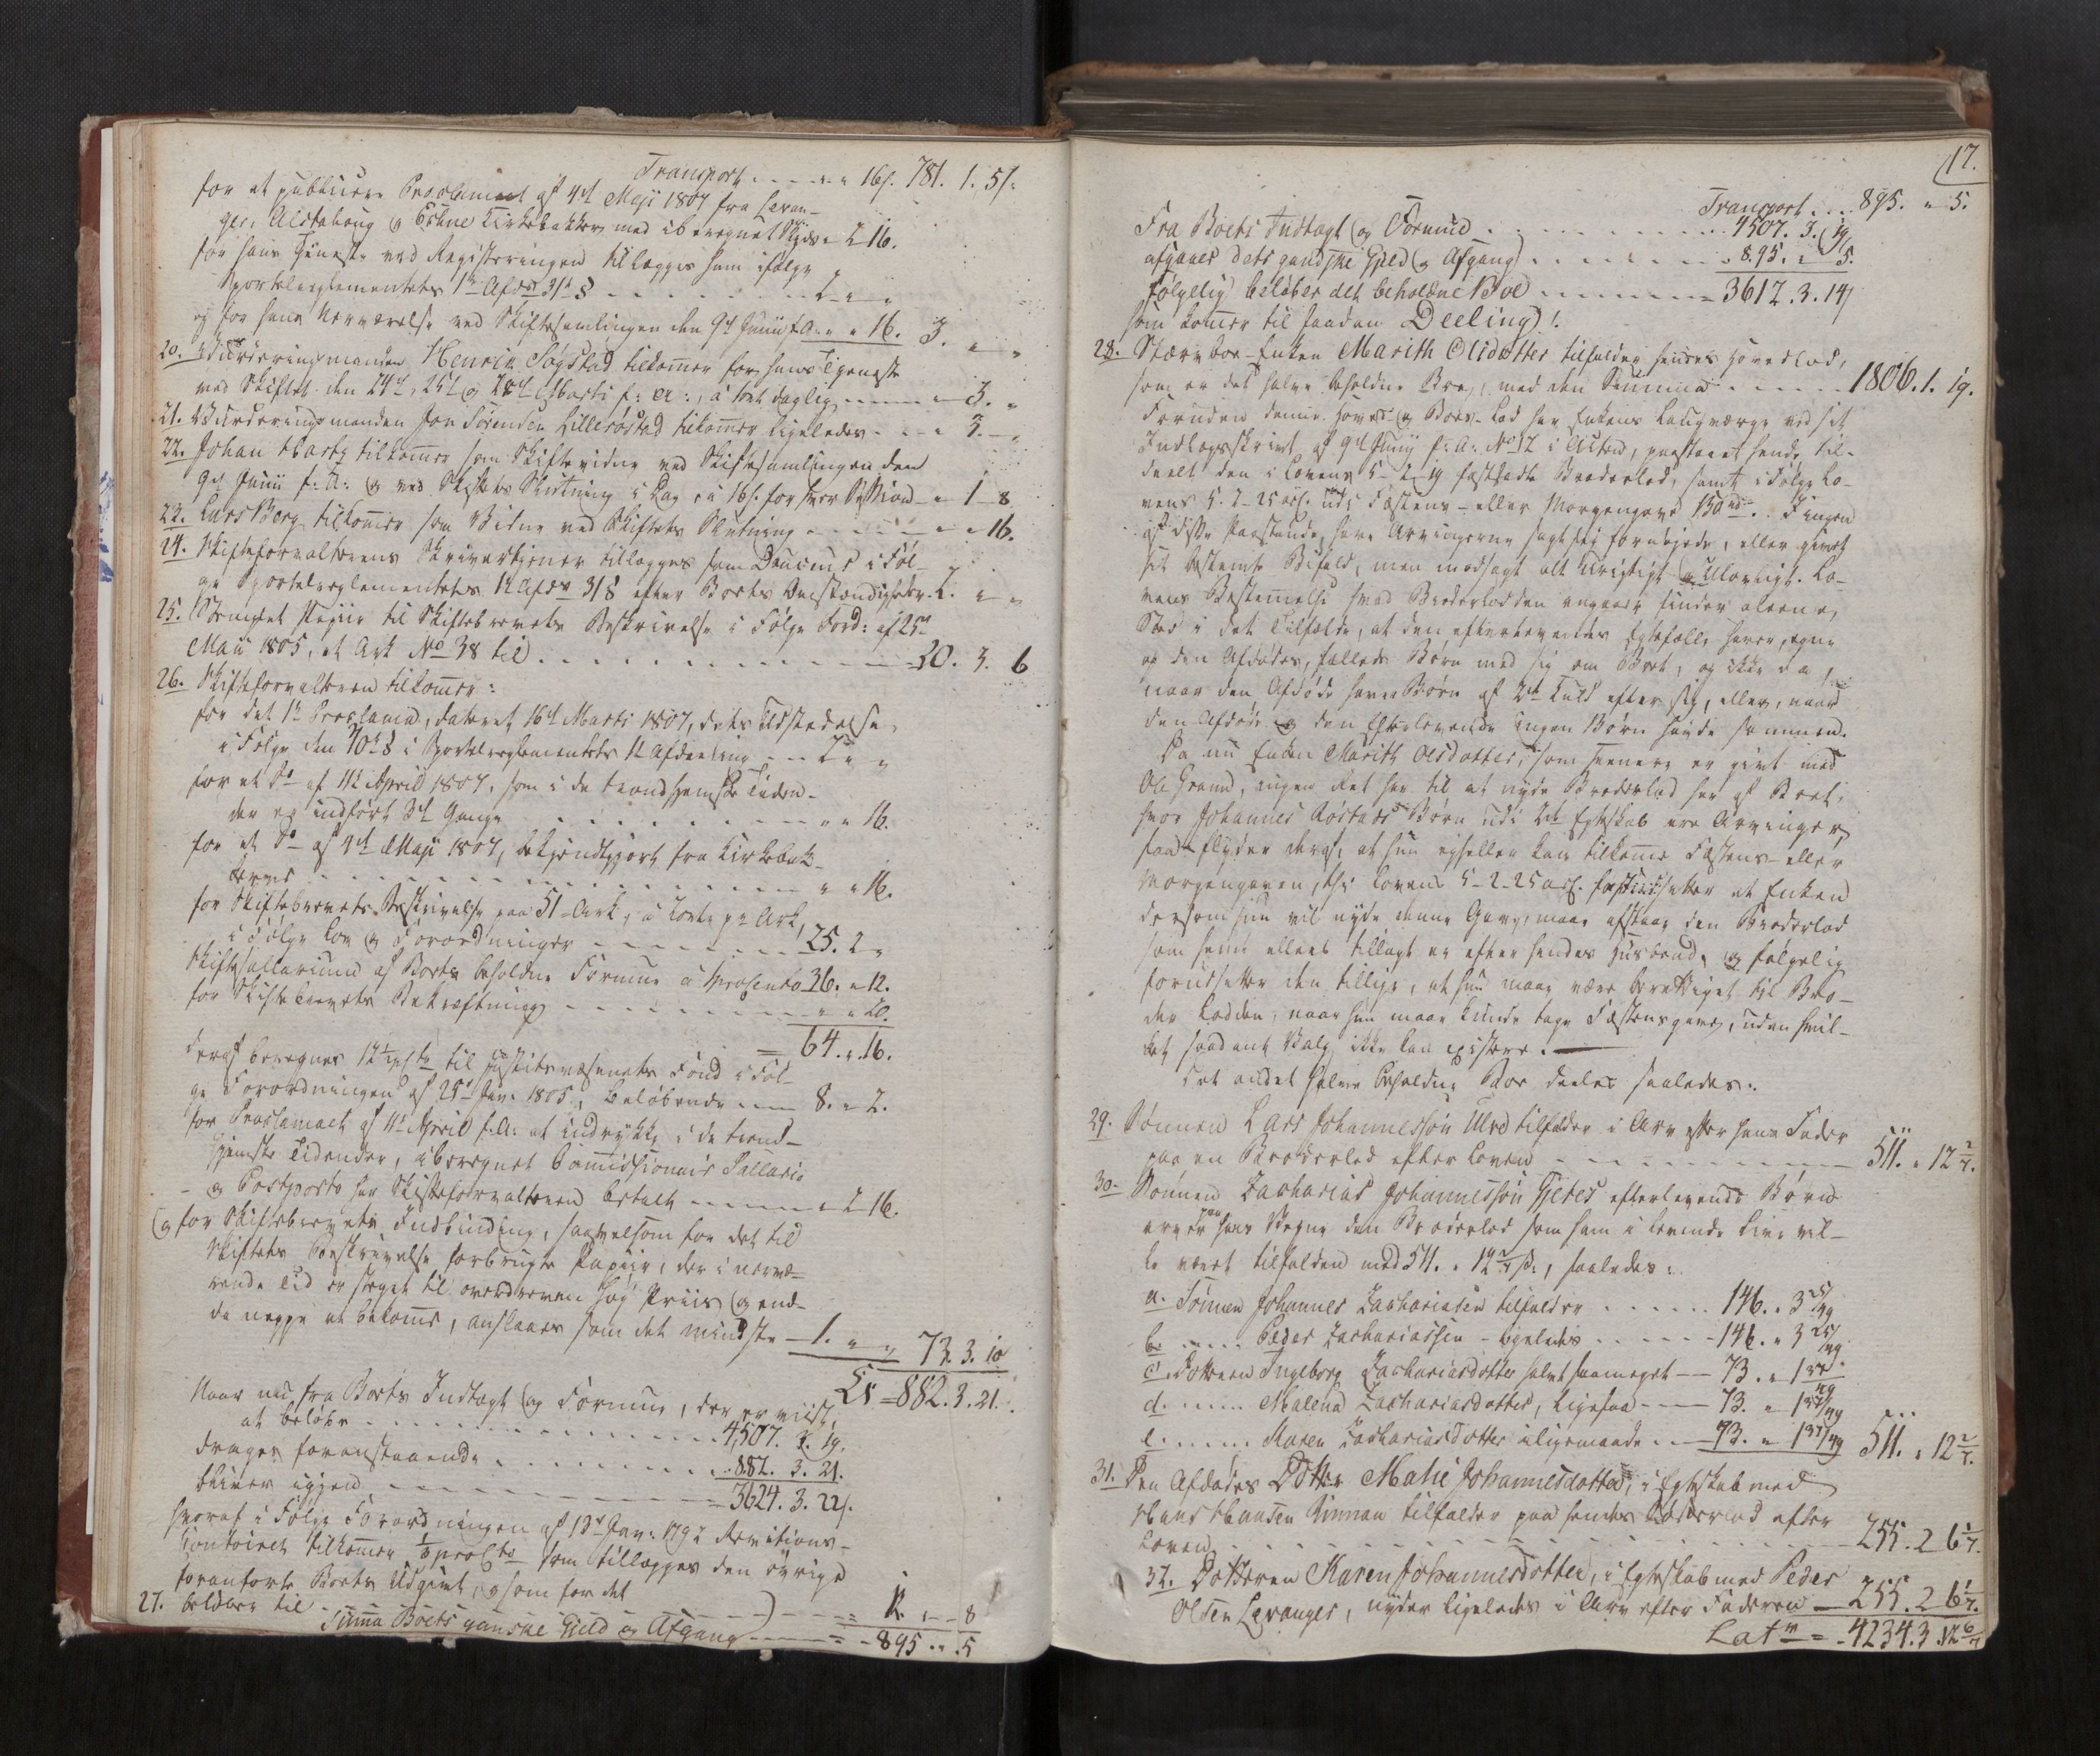 Transport - - - - " 16/. 781. 1. 5/:
for at publicere Proclamaet af 4de Maji 1807 fra Levan-
ger, Alstahoug og Echne Kirkebakker med iberegnet Skyds - 2 16.
for hans Tieneste ved Registeringen tillægges ham ifølge
Sportelreglementets 1te Afdr 31te § - - - - - - - 2 - " - "
og for hans Nærværelse ved Skiftesamlingen den 9de Junii f. a. - " 16. 3. " "
20. Vurderingsmanden Henrik Søgstad tilkommer for hans Tieneste
ved Skiftet den 24de, 25de og 28de Martii f: A:, à 1ort daglig - - - - 3. "
21. Vurderingsmanden Jon Sørensen Lillerøstad tilkommer ligeledes - - - " 3. - "
22. Johan Harby tilkommer som Skiftevidne ved Skiftesamlingen den
9de Junii f: A: og ved Skiftets Slutning i Dag, à 16/. for hver Session - " 1 - 8
23. Lars Borg tilkommer som Vidne ved Skiftets Slutning - - - - - " " 16.
24. Skifteforvalterens Skrivertjener tillægges som Douceur i Føl-
ge Sportelreglementets 1te Afdr 31 § efter Boets Omstændigheder - 2. " "
25. Stemplet Papiir til Skiftebrevets Beskrivelse i Følge Ford: af 25de
Maii 1805, et Ark No 38 til - - - - - - - - - - - 20. 3. 6
26. Skifteforvalteren tilkommer:
for det 1te Proclama, dateret 16de Martii 1807, dets Udstædelse,
i Følge den 70de § i Sportelreglementets 1te Afdeeling - - - 2 " "
for et Do af 11te April 1807, som i de trondhjemske Tiden-
der er indført 3de Gange - - - - - - - - - - " " 16.
for et Do af 4de Maji 1807, bekjendtgjort fra Kirkebak-
kerne - - - - - - - - - - - - - - - " " 16.
for Skiftebrevets Beskrivelse paa 51 Ark, à 2ort pr Ark,
i Følge Lov og Forordninger - - - - - - - 25. 2 "
Skiftesallarium af Boets beholdne Formue à 1procento 36. " 12.
for Skiftebrevets Bekræftning - - - - - - - - - - " " 20.
= 64. " 16.
deraf beregnes 12½pCto til Justitsvæsenets Fond i Føl-
ge Forordningen af 25de Jan: 1805, beløbende - - - 8. " 2.
for Proclamaet af 11te April f. A: at indrykke i de trond-
hjemske Tidender, iberegnet Commissionair Sallario
og Postporto har Skifteforvalteren betalt - - - - - - 2 16.
og for Skiftebrevets Indbinding, saavelsom for det til
Skiftets Beskrivelse forbrugte Papiir, der i nærvæ-
rende Tid er steget til overdreven høy Priis og end-
da neppe at bekomme, anslaaes som det mindste - 1. " " 73. 3. 10
Er = 882. 3. 21.
Naar nu fra Boets Indtægt og Formue, der er viist,
at beløbe - - - - - - - - - - - - - - 4,507. 3. 19.
drages foranstaaende - - - - - - - - - 882. 3. 21.
bliver igjen - - - - - - - - - - - = 3624. 3. 22/.
hvoraf i Følge Forordningen af 13de Jan: 1792 Revisions-
Contoiret tilkommer ⅓ proCto som tillægges den øvrige
foranførte Boets Udgivt, og som for det
beløber til - - - - - - - - - - - - = 12. " - 8
27. Summa Boets ganske Gield og Afgang - - - - = - 895. " . 5
17.
Transport . . . 895. " 5.
Fra Boets Indtægt og Formue - - - - - - - 4507. 3. 19.
afgaaer dets gandske Gjeld og Afgang - - - - - 895. " 5.
følgelig beløber det beholdne Boe - - - - - = 3612. 3. 14/
som kommer til saadan Deeling):
28. Stærvboe-Enken Marith Olsdatter tilfalder hendes Hovedlod,
som er det halve beholdne Boe, med den Summa - - - - - 1806. 1. 19.
Foruden denne Hoved- og Boes-Lod har Enkens Laugværge ved sit
Indlægsskrivt af 9de Junij f: A: No 12 i Acten, paastaaet hende til-
deelt den i Lovens 5-2-19 fastsadte Broderlod, samt i Følge Lo-
vens 5-2-25 art. udi Fæstens- eller Morgengave 150 rd. I ingen
af disse Paastande, have Arvingerne sagt sig fornøjede, eller givet
sit bestemte Bifald, men modsagt alt Urigtigt og Ulovligt. Lo-
vens Bestemelse hvad Broderlodden angaaer finder aleene
Sted i det Tilfælde, at den efterlevendes Egtefælle haver, egne
og den Afdødes, fælleds Børn med sig om Boet, og ikke da,
naar den Afdøde haver Børn af 2de Kuld efter sig, eller, naar
den Afdøde og den Efterlevende ingen Børn havde sammen.
Da nu Enken Marith Olsdatter, som senere er givt med
Ole Grann, ingen Ret har til at nyde Broderlod her af Boet,
hvor Johannes Røstads Børn udi 2de Egteskab ere Arvinger,
saa flyder deraf, at hun ejheller kan tilkomme Fæstens- eller
Morgengaven, thi Lovens 5-2-25 art. fastsætter at Enken
dersom hun vil nyde denne Gave, maae afstaae den Broderlod
som hende ellers tillagt er efter hendes Husbond, og følgelig
forudsætter den tillige, at hun maae være berettiget til Bro-
der Lodden, naar hun maae kunde tage Fæstensgave, uden hvil-
ket saadant Valg ikke kan existere. —
Det andet halve beholdne Boe deeles saaledes:
29. Sønnen Lars Johannessøn Ulve tilfalder i Arv efter hans Fader
paa en Broderlod efter Loven - - - - - - - - - - - 511. " 12 2/7.
30. Sønnen Zacharias Johannessøn Gjetes efterlevende Børn
arver paa hans Vegne den Broderlod som ham i levende Live vil-
le været tilfalden med 511. " 12 2/7 ß:, saaledes:
a. Sønnen Johannes Zachariasen tilfalder . . . . . 146. " 3 25/49
b. - - - - Peder Zachariassen - ligeledes - - - - - - 146. " 3 25/49
c. Datteren Ingeborg Zachariasdatter halvt saameget - - 73. " 1 37/49
d. - - - - Malena Zachariasdatter, ligesaa - - - - 73. " 1 37/49
e. - - - - Karen Zachariasdotter iligemaade - - - 73. " 1 37/49 511. " 12 2/7.
31. Den Afdødes Dotter Malie Johannesdotter, i Egteskab med
Hans Hansen Rinnan tilfalder paa hendes Søsterlod efter
Loven - - - - - - - - - - - - - - - - - - 255. 2 6 1/7.
32. Dotteren Karen Johannesdotter, i Egteskab med Peder
Olsen Levanger, nyder ligeledes i Arv efter Faderen - 255. 2 6 1/7.
Latus = - 4234. 3. 12 6/7